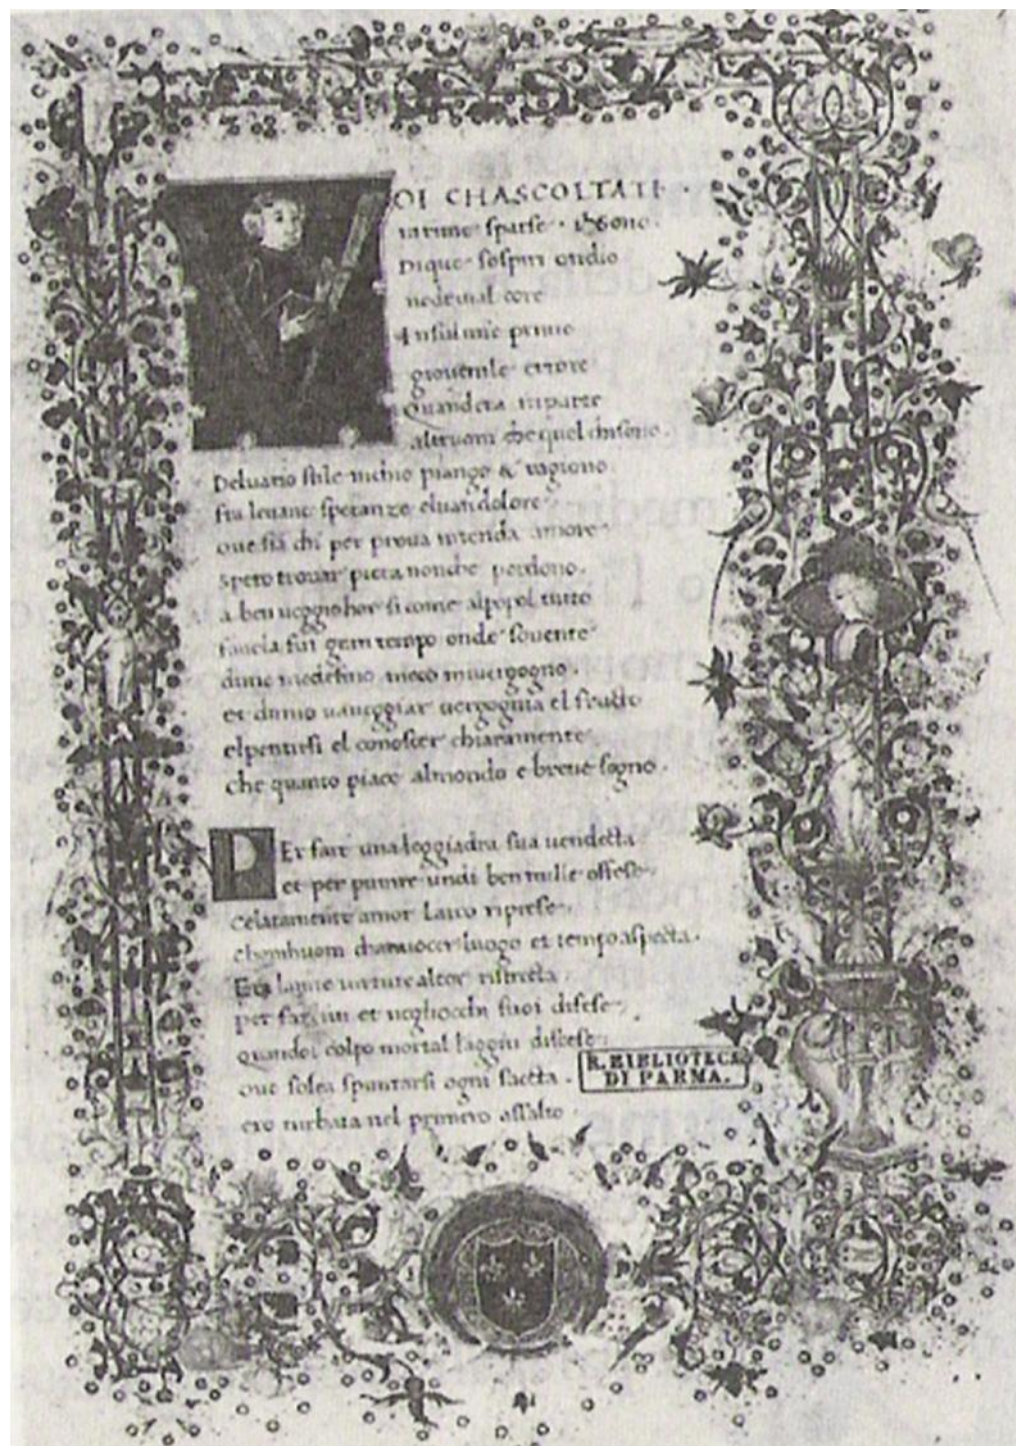 VOI CHASCOLTATE
in rime sparse il suono
Di que sospiri ondio
nudriva il core
In sul mio primo
giovenile errore
Quandera in parte
altruom da quel chisono.
Del vario stile inchio piango & ragiono
fra levane speranze elvan dolore
ove sia chi per prova intenda amore
spero trovar pieta nonche perdono.
a ben veggio hor si come alpopol tutto
favola fui gran tempo onde sovente
di me medesmo meco mi vergogno.
et del mio vaneggiar vergogna el fructo
elpentirsi el conoscer chiaramente
che quanto piace almondo e breve sogno.
PEr fare una leggiadra sua vendecta
et per punire undi ben mille offese
Celatamente amor larco riprese
chomhuom chanuocer luogo et tempo aspecta.
Era lamie virtute alcor ristrecta
per far ivi et negliocchi suoi difese
quandol colpo mortal laggiu discese
ove solea spuntarsi ogni saetta.
ero turbata nel primero assalto
R. BIBLIOTECA
DI PARMA.